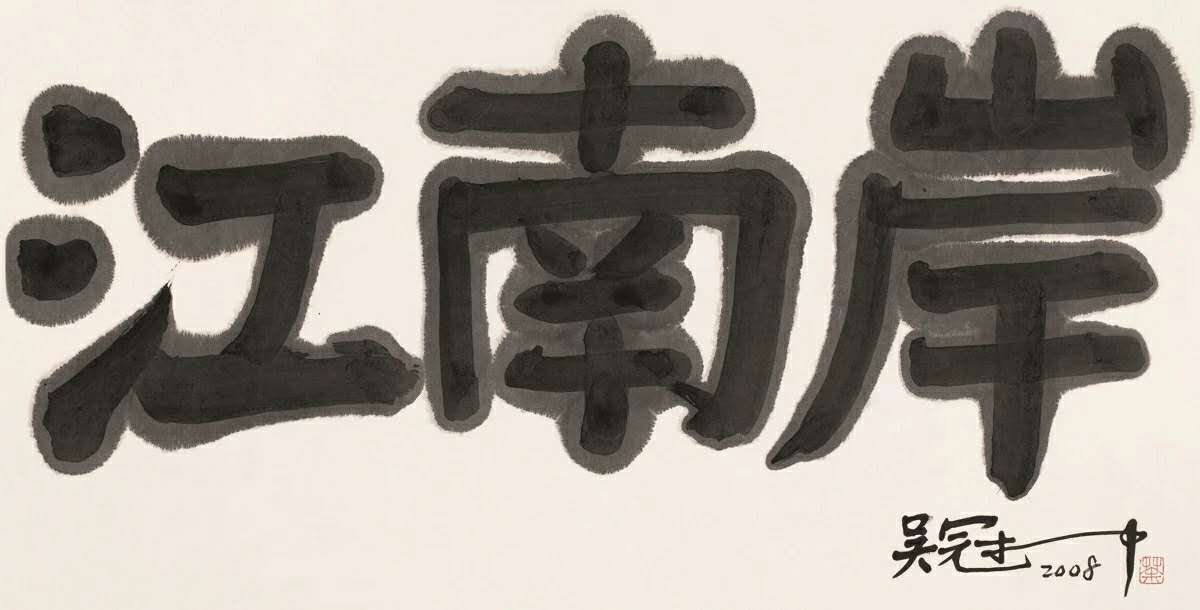 江南岸
吴冠中
2008
荼